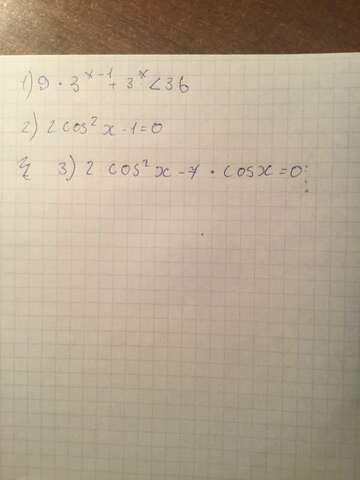 1) 9 · 3^(x-1) + 3^x < 36
2) 2 cos² x - 1 = 0
3) 2 cos² x - 7 · cos x = 0